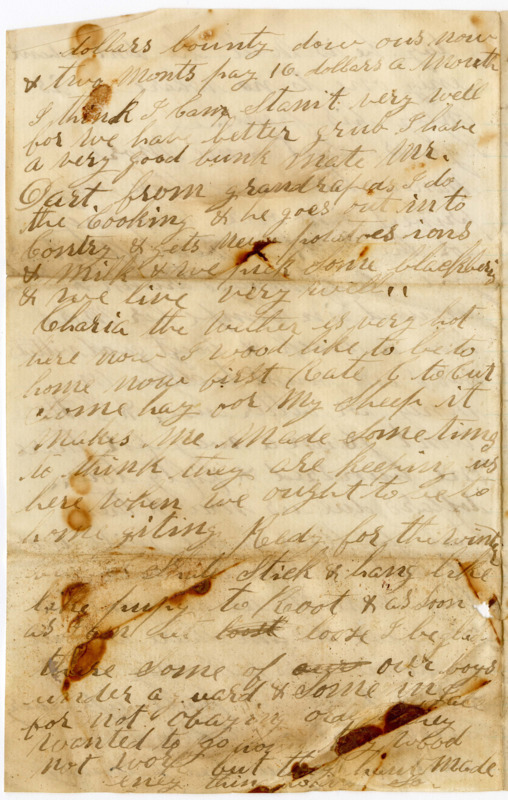 dollars bounty dow ous now
& two monts pay 16 dollars a Month
I think I Can Stant very well
for we have better grub I have
a very good bunk mate Mr.
Dart from grandrapeds I do
the Cooking & he goes out in to
Contry & gets new potatoes ions
& Milk & we pick some blackberiys
& we live very well
Charia the wether is very hot
here now I wood like to be to
home now first Rate to Cut
some hay for My Sheep it
Makes Me Made Some timg
to think they are keeping us
here when we ought to be to
home giting Redy for the winter
Stick & hang like
to Root & as soon
as I can loose I be
there some of our boys
under a gard & some in
for not obaying they
wanted to go wood
not work but they have Made